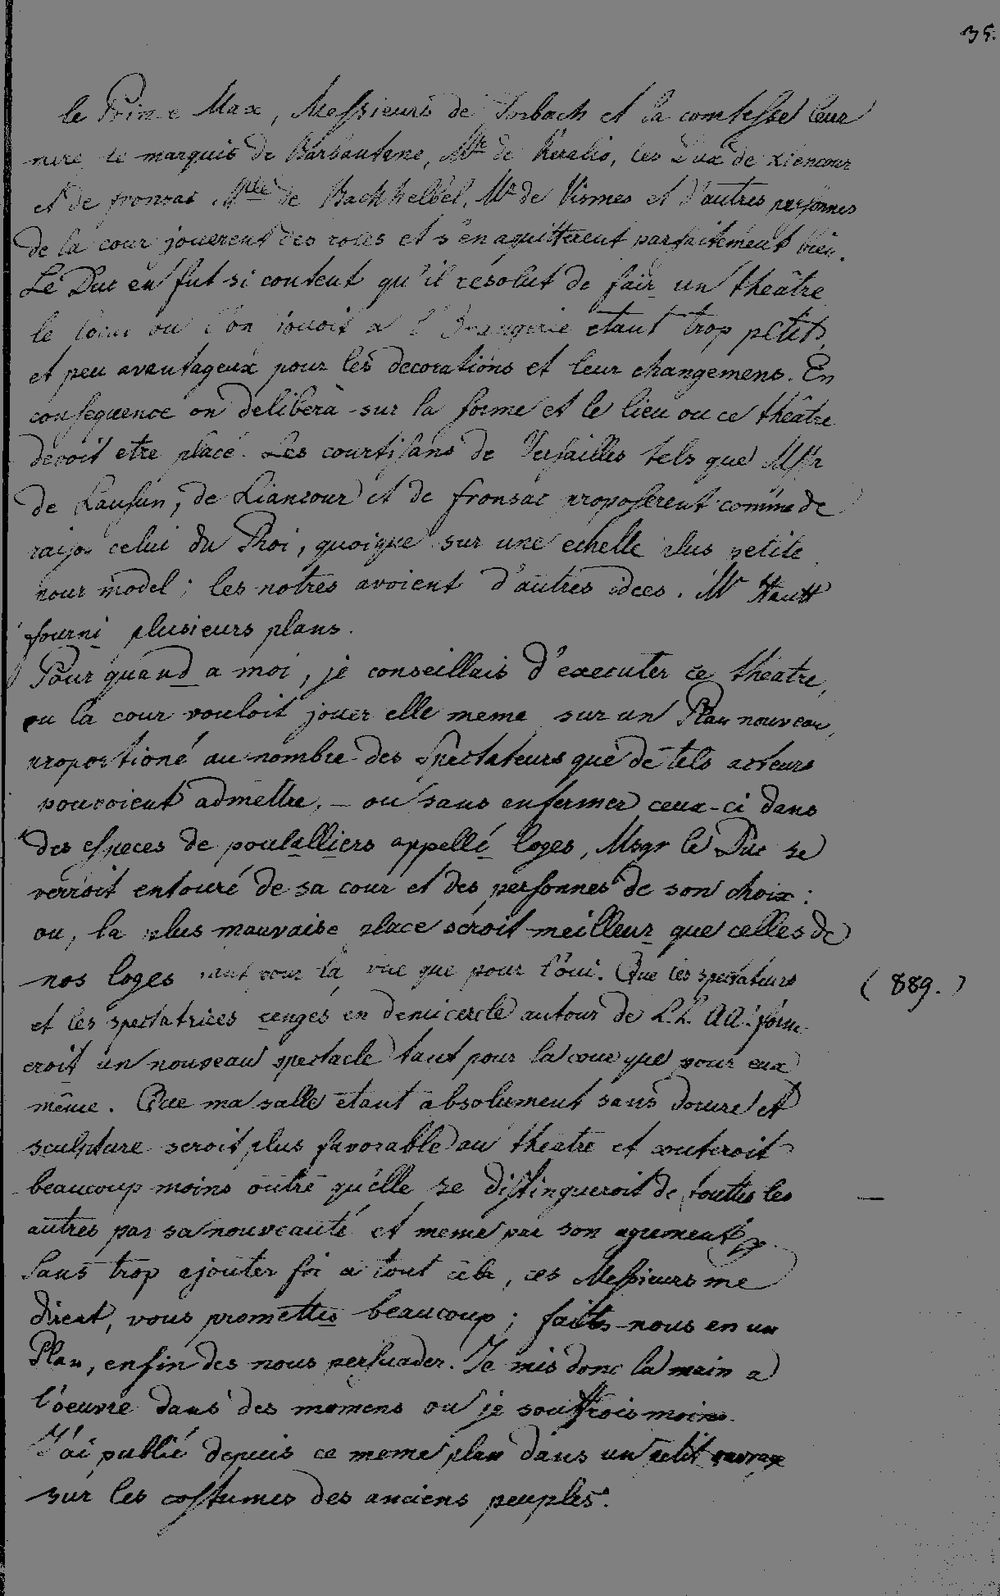 35.
le Prince Max, Messieurs de Forbach et la comtesse leur
mere le marquis de Barbantane, Mr de Keralio, les Dux de Liencour
et de fronsac Mlle de Bachhelbel, Mr de Vismes et d'autres personnes
de la cour jouerent des roles et s'en aquitterent parfaitement bien.
Le Duc en fut si content qu'il résolut de fair un theâtre
le local ou l'on jouoit a l'Orangerie etant trop petit,
et peu avantageux pour les decorations et leur changemens. En
consequence on delibera sur la forme et le lieu ou ce théâtre
devoit etre placé. Les courtisans de Versailles tels que Mssr
de Lausun, de Liancour et de fronsac proposerent comme de
raison celui du Roi, quoique sur une echelle plus petite
pour model; les notres avoient d'autres idees. Mr Hautt
fourni plusieurs plans.
Pour quand a moi, je conseillais d'executer ce theatre,
ou la cour vouloit jouer elle meme sur un Plan nouveau,
proportioné au nombre des Spectateurs que de tels acteurs
pouroient admettre, – ou sans enfermer ceux-ci dans
des especes de poulalliers appellé loges, Msgr le Duc se
verroit entouré de sa cour et des personnes de son choix:
ou, la plus mauvaise place seroit meilleur que celles de
nos loges tant pour la vue que pour l'oui. Que les spectateurs
(889.)
et les spectatrices rengés en demicercle autour de L.L. AA. form-
eroit un nouveau spectacle tant pour la cour que pour eux
même. Que ma salle etant absolument sans dorure et
sculpture seroit plus favorable au théatre et couteroit
beaucoup moins outre qu'elle se distingueroit de toutes les
autres par sa nouveauté et meme par son agrement
Sans trop ajouter foi a tout cela, ces Messieurs me
dirent, vous promettes beaucoup; faits-nous en un
Plan, enfin des nous persuader. Je mis donc la main a
l'oeuvre dans des momens ou je souffrois moins.
J'ai publié depuis ce meme plan dans un petit ouvrage
sur les costumes des anciens peuples.